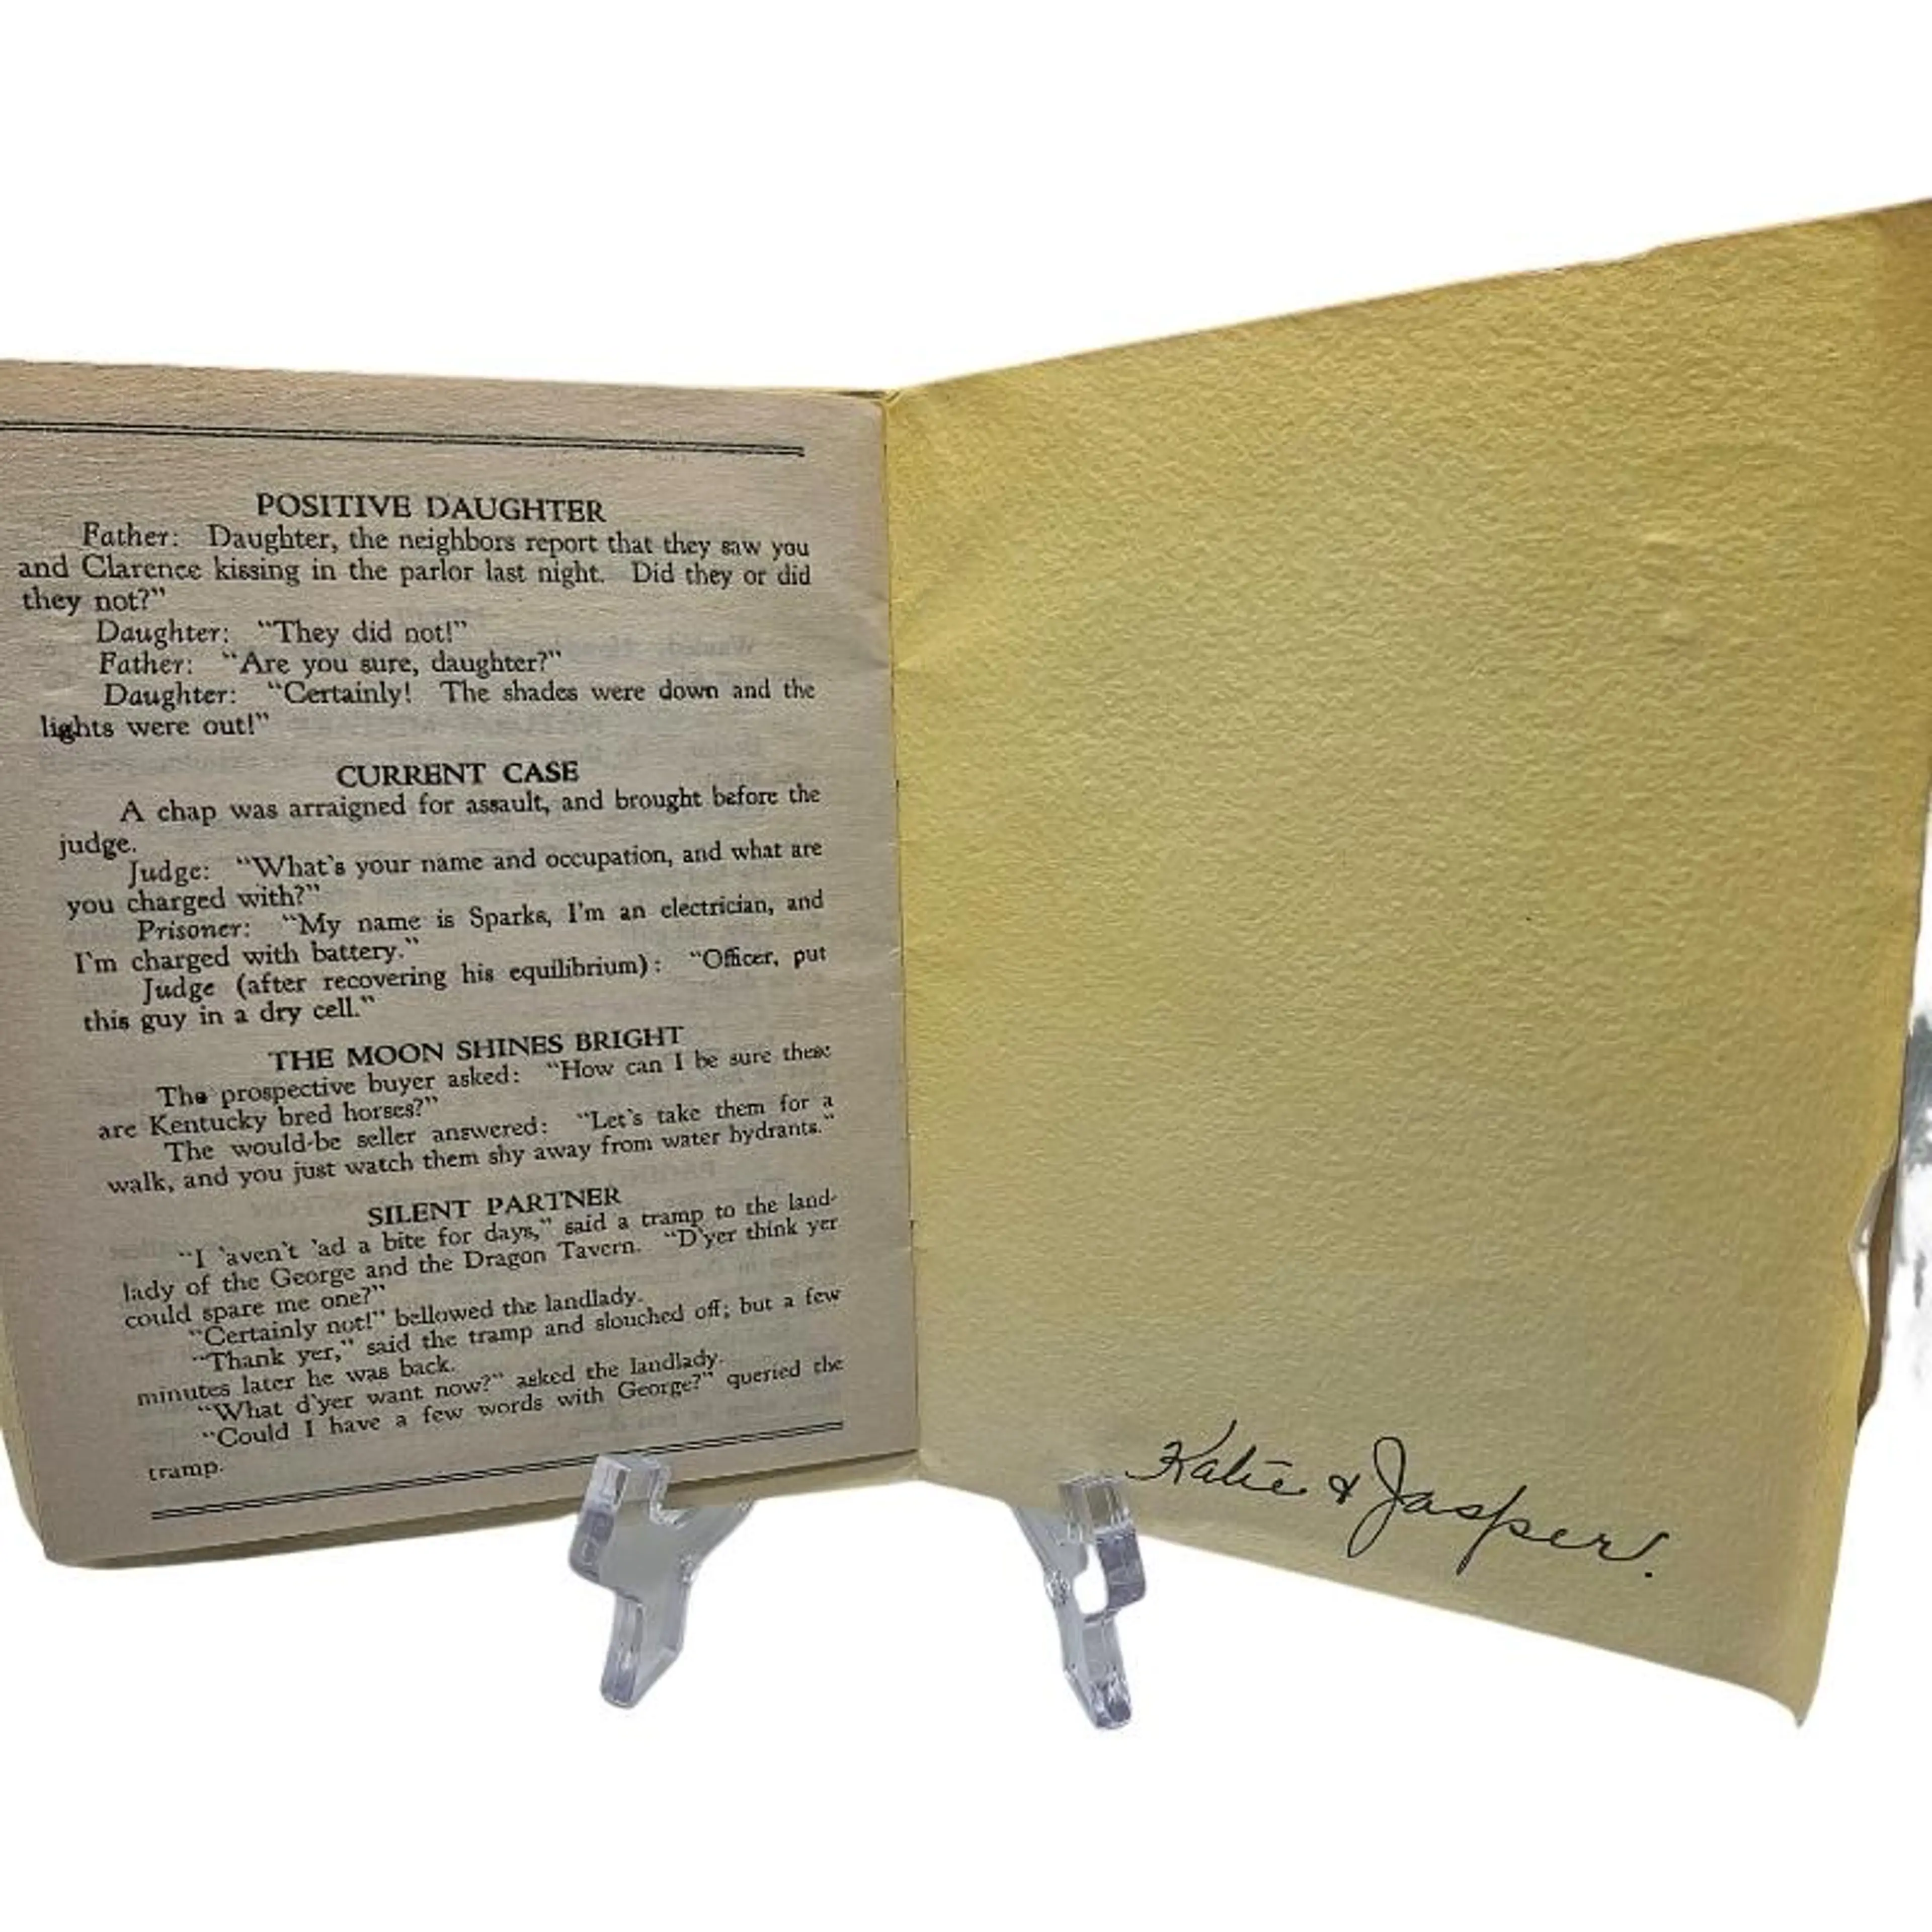 POSITIVE DAUGHTER
Father: Daughter, the neighbors report that they saw you
and Clarence kissing in the parlor last night. Did they or did
they not?”
Daughter: “They did not!”
Father: “Are you sure, daughter?”
Daughter: “Certainly! The shades were down and the
lights were out!”
CURRENT CASE
A chap was arraigned for assault, and brought before the
judge.
Judge: “What's your name and occupation, and what are
you charged with?”
Prisoner: “My name is Sparks, I'm an electrician, and
I'm charged with battery.”
Judge (after recovering his equilibrium): “Officer, put
this guy in a dry cell.”
THE MOON SHINES BRIGHT
The prospective buyer asked: “How can I be sure these
are Kentucky bred horses?”
The would-be seller answered: “Let's take them for a
walk, and you just watch them shy away from water hydrants.”
SILENT PARTNER
“I 'aven't 'ad a bite for days,” said a tramp to the land-
lady of the George and the Dragon Tavern. “D'yer think yer
could spare me one?”
“Certainly not!” bellowed the landlady.
“Thank yer,” said the tramp and slouched off; but a few
minutes later he was back.
“What d'yer want now?” asked the landlady.
“Could I have a few words with George?” queried the
tramp.
Katie & Jasper.